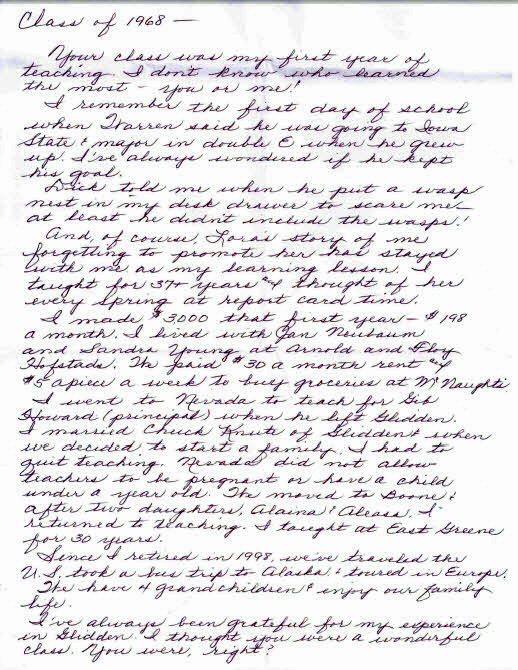 Class of 1968 —
Your class was my first year of
teaching. I don't know who learned
the most - you or me!
I remember the first day of school
when Warren said he was going to Iowa
State & major in double E when he grew
up. I've always wondered if he kept
his goal.
Dick told me when he put a wasp
nest in my desk drawer to scare me-
at least he didn't include the wasps!
And, of course, Lora's story of me
forgetting to promote her has stayed
with me as my learning lesson. I
taught for 37+ years & thought of her
every spring at report card time.
I made $3,000 that first year - $198
a month. I lived with Jan Neubaum
and Sandra Young at Arnold and Floy
Hofstads. We paid $30 a month rent &
$5 apiece a week to buy groceries at McNaughts.
I went to Nevada to teach for Gib
Howard (principal) when he left Glidden.
I married Chuck Knute of Glidden & when
we decided to start a family, I had to
quit teaching. Nevada did not allow
teachers to be pregnant or have a child
under a year old. We moved to Boone &
after two daughters, Alaina & Aleass, I
returned to teaching. I taught at East Greene
for 30 years.
Since I retired in 1998, we've traveled the
U.S. took a bus trip to Alaska & toured in Europe.
We have 4 grandchildren & enjoy our family
life.
I've always been grateful for my experience
in Glidden. I thought you were a wonderful
class. You were, right?